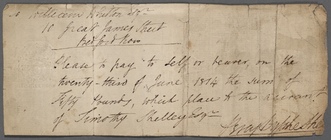 William Whitton Esqr.
10 Great James Street
Bedford Row
Please to pay to self or bearer, on the
twenty-third of June 1814 the sum of
Fifty pounds, which place to the account
of Timothy Shelley Esqr.
Percy Bysshe Shelley